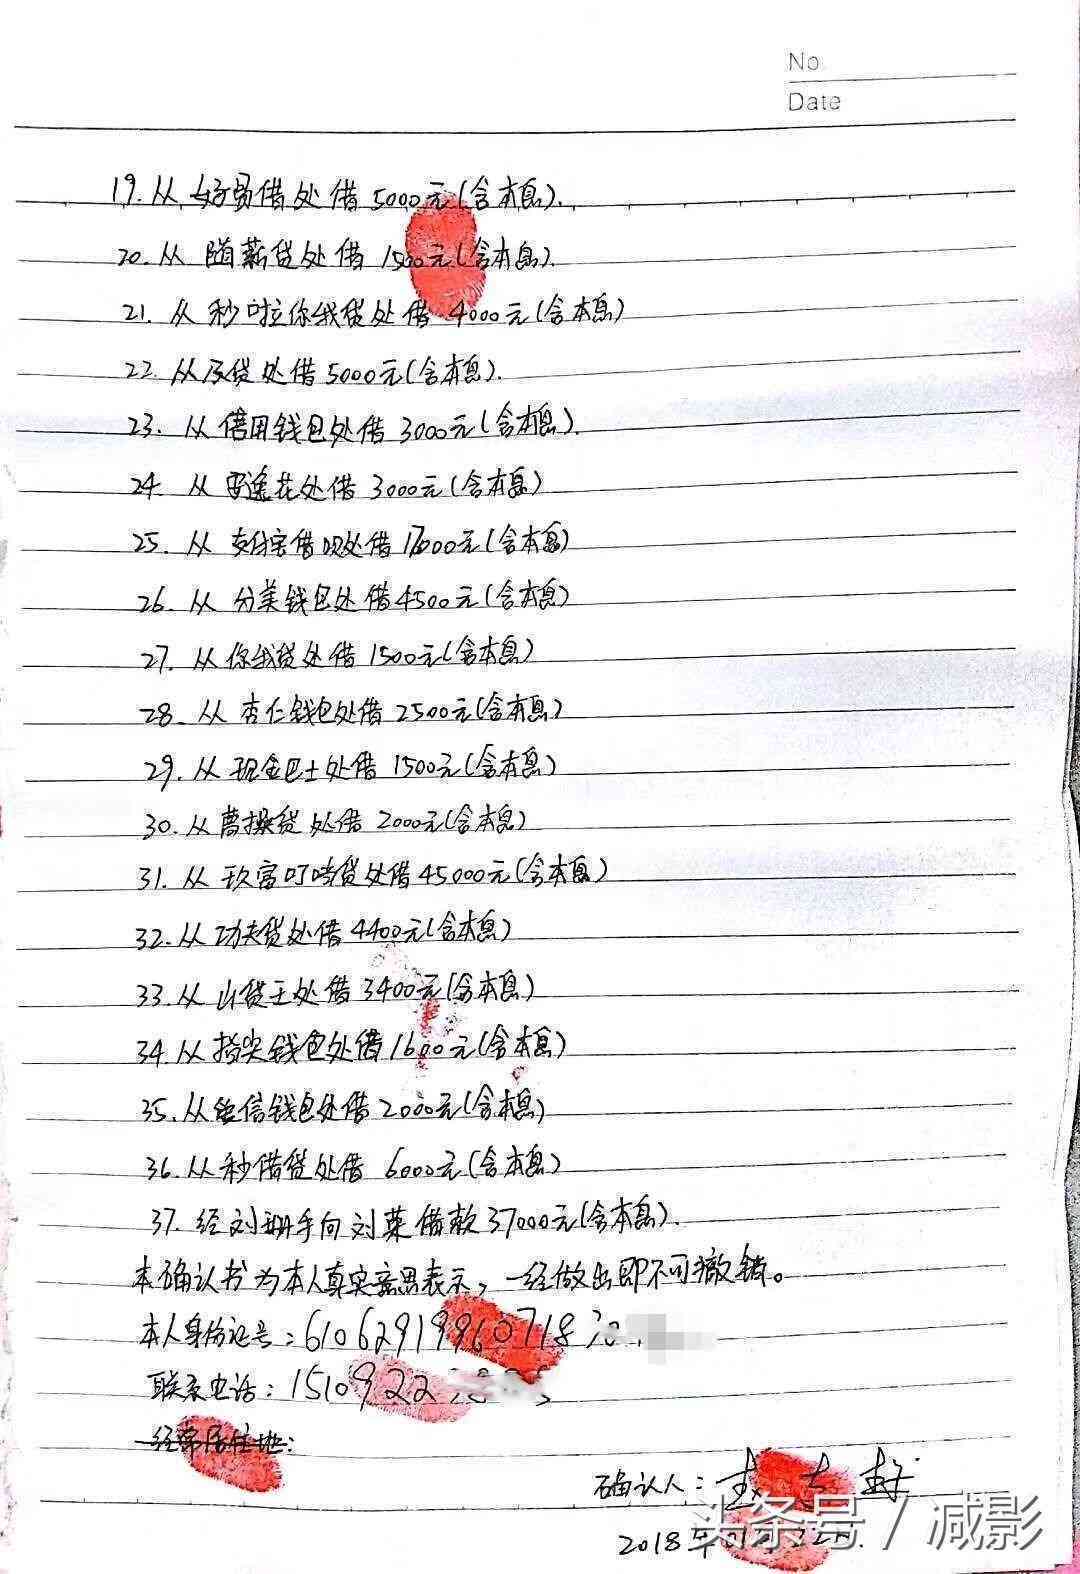 No
Date
19.从好易借处借5000元(含本息).
20.从随薪贷处借1500元(含本息).
21.从秒啦你我贷处借4000元(含本息)
22.从及贷处借5000元(含本息).
23.从信用钱包处借3000元(含本息).
24.从花处借3000元(含本息)
25.从支付宝借呗处借17000元(含本息)
26.从分美钱包处借4500元(含本息)
27.从你我贷处借1500元(含本息)
28.从杏仁钱包处借2500元(含本息)
29.从现金巴士处借1500元(含本息)
30.从曹操贷处借2000元(含本息)
31.从玖富叮当贷处借45000元(含本息)
32.从功夫贷处借4400元(含本息)
33.从贷王处借3400元(含本息)
34.从指尖钱包处借1600元(含本息)
35.从信钱包处借2000元(含本息)
36.从秒借贷处借6000元(含本息)
37.经刘珊手向刘菜借款37000元(含本息).
本确认书为本人真实意思表示,一经做出即不可撤销。
本人身份证号:61062919960718
联系电话:1510922
经常居住地:
确认人:
2018年
头条号/减影